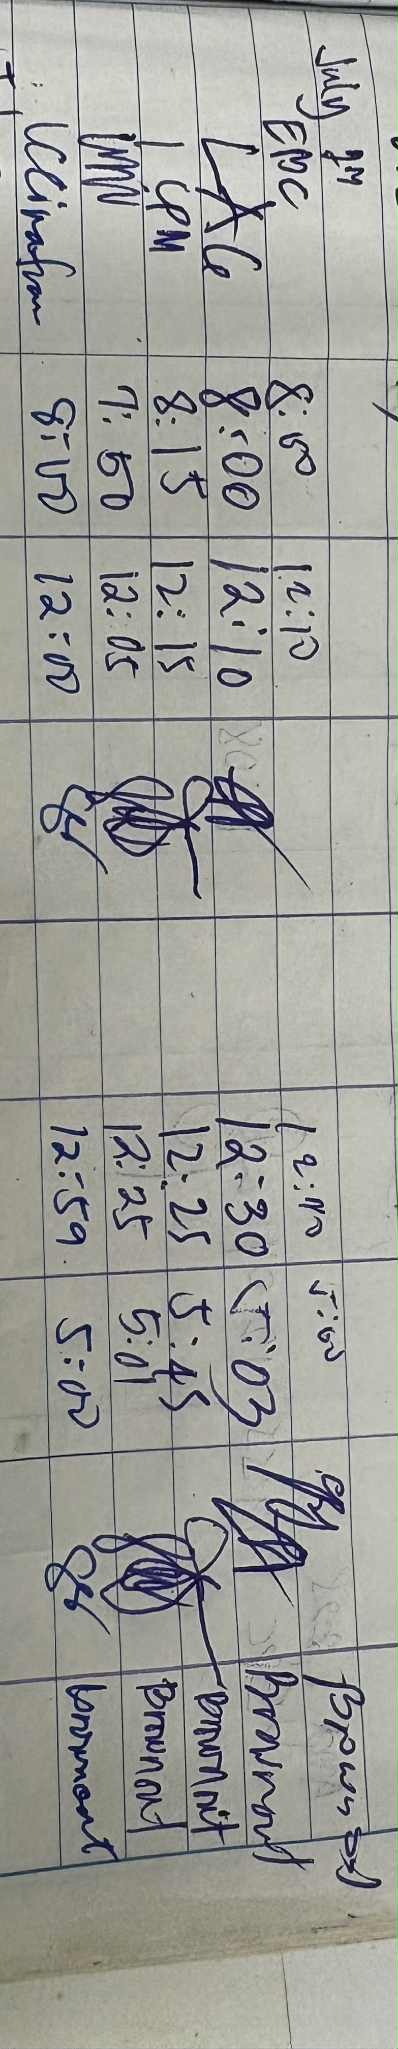 July
EMC 8:00 12:10 12:10 5:00 Brownout
LAG 8:00 12:10 12:30 5:03 Brownout
CPM 8:15 12:15 12:25 5:45 Brownout
7:50 12:05 12:25 5:01 Brownout
8:00 12:00 12:59 5:00 brownout